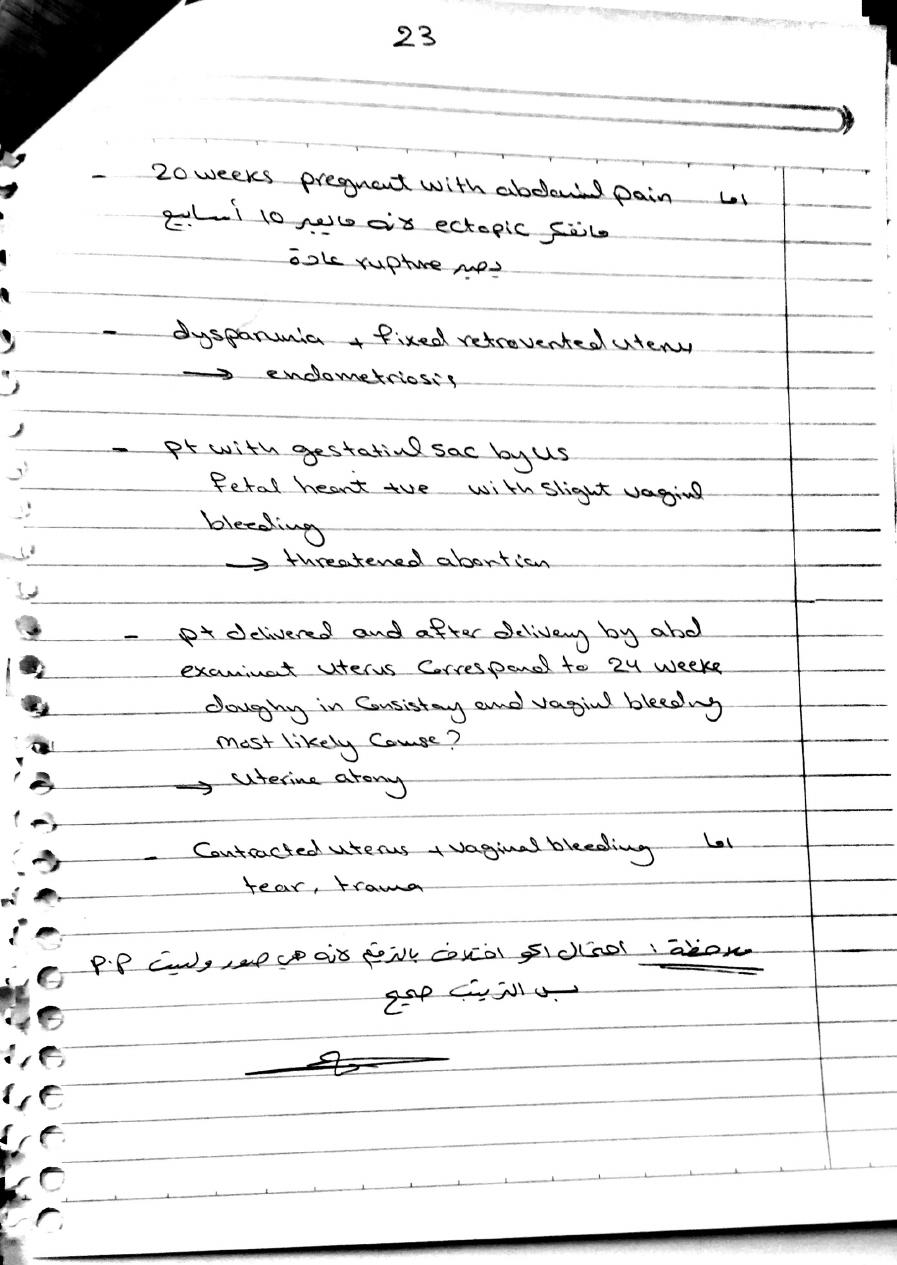 23
- 20 weeks pregnant with abdominal pain اما
مانفكر ectopic لانه مايعبر 10 أسابيع
يصير rupture عادة
- dysparunia + fixed retrovented uterus
→ endometriosis
- pt with gestational sac by us
fetal heart +ve with slight vaginal
bleeding
→ threatened abortion
- pt delivered and after delivery by abd
examinat uterus correspond to 24 weeks
doughy in consistay and vaginal bleeding
most likely cause?
→ uterine atony
- Contracted uterus + vaginal bleeding اما
tear, trama
ملاحظة : احتمال اكو اختلاف بالترقيم لانه هي صور وليست P.P
بس الترتيب صحيح